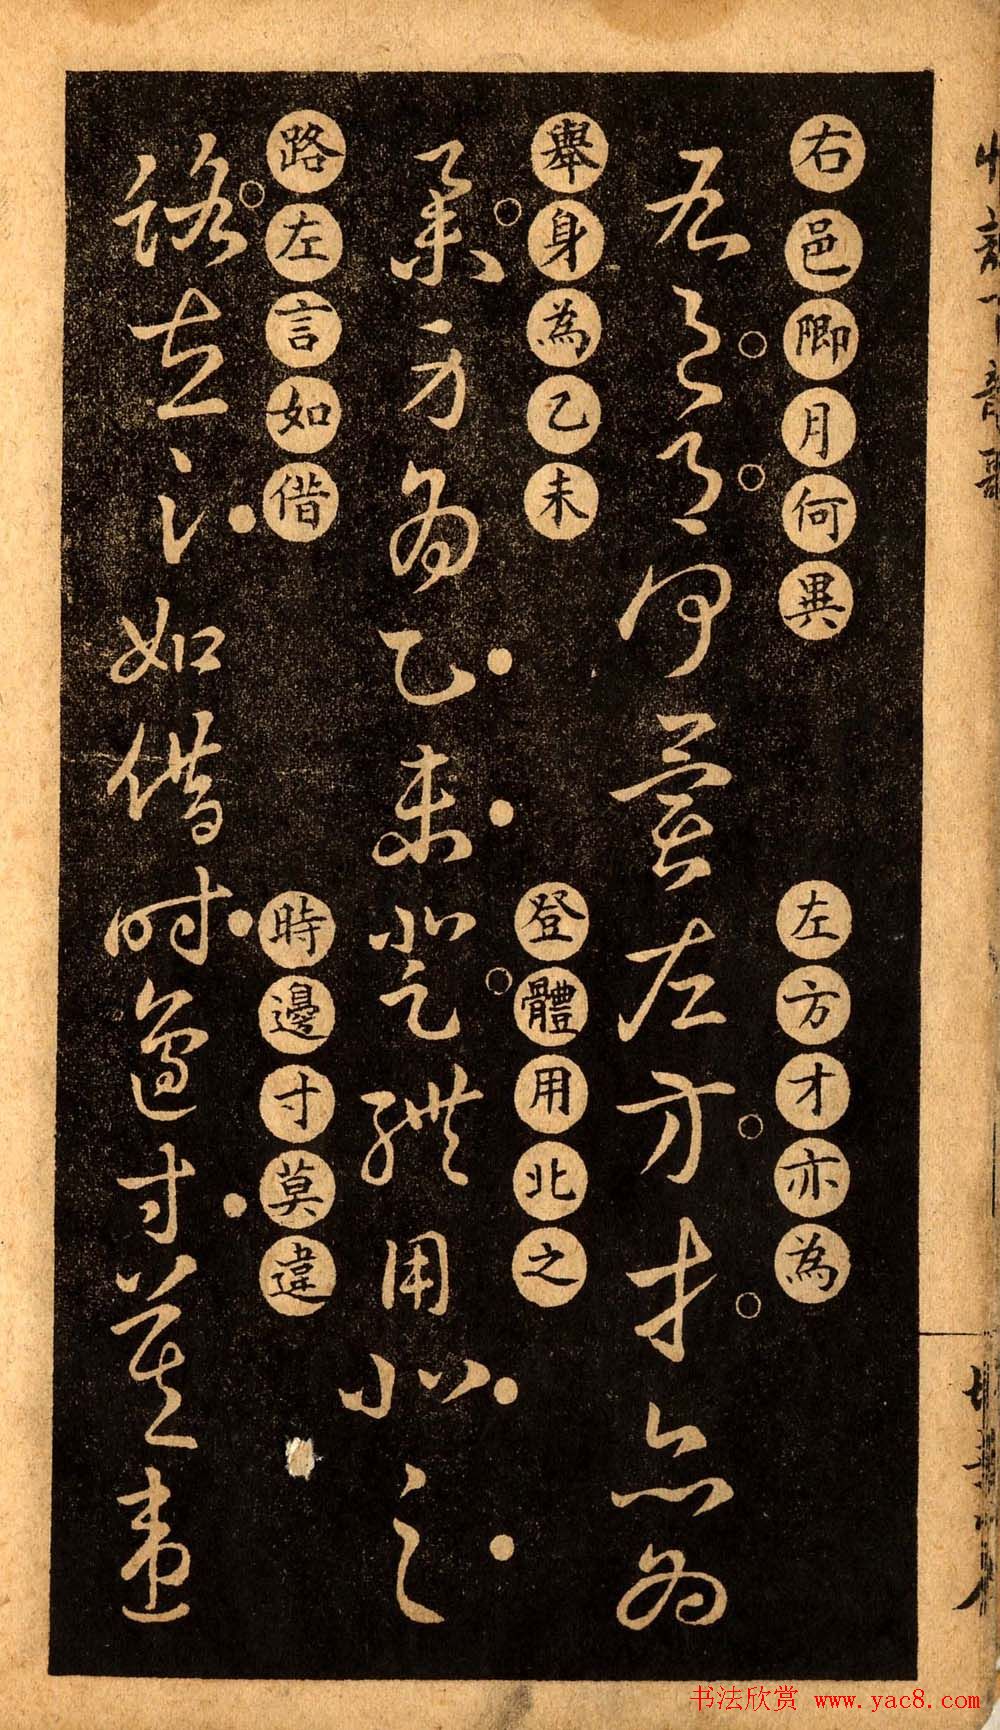 右邑卿月何異
左方才亦為
右邑月何異左方才亦為
舉身為乙未
登體用北之
舉身為乙未登體用北之
路左言如借
時邊寸莫違
路左言如借時邊寸莫違
书法欣赏 www.yac8.com